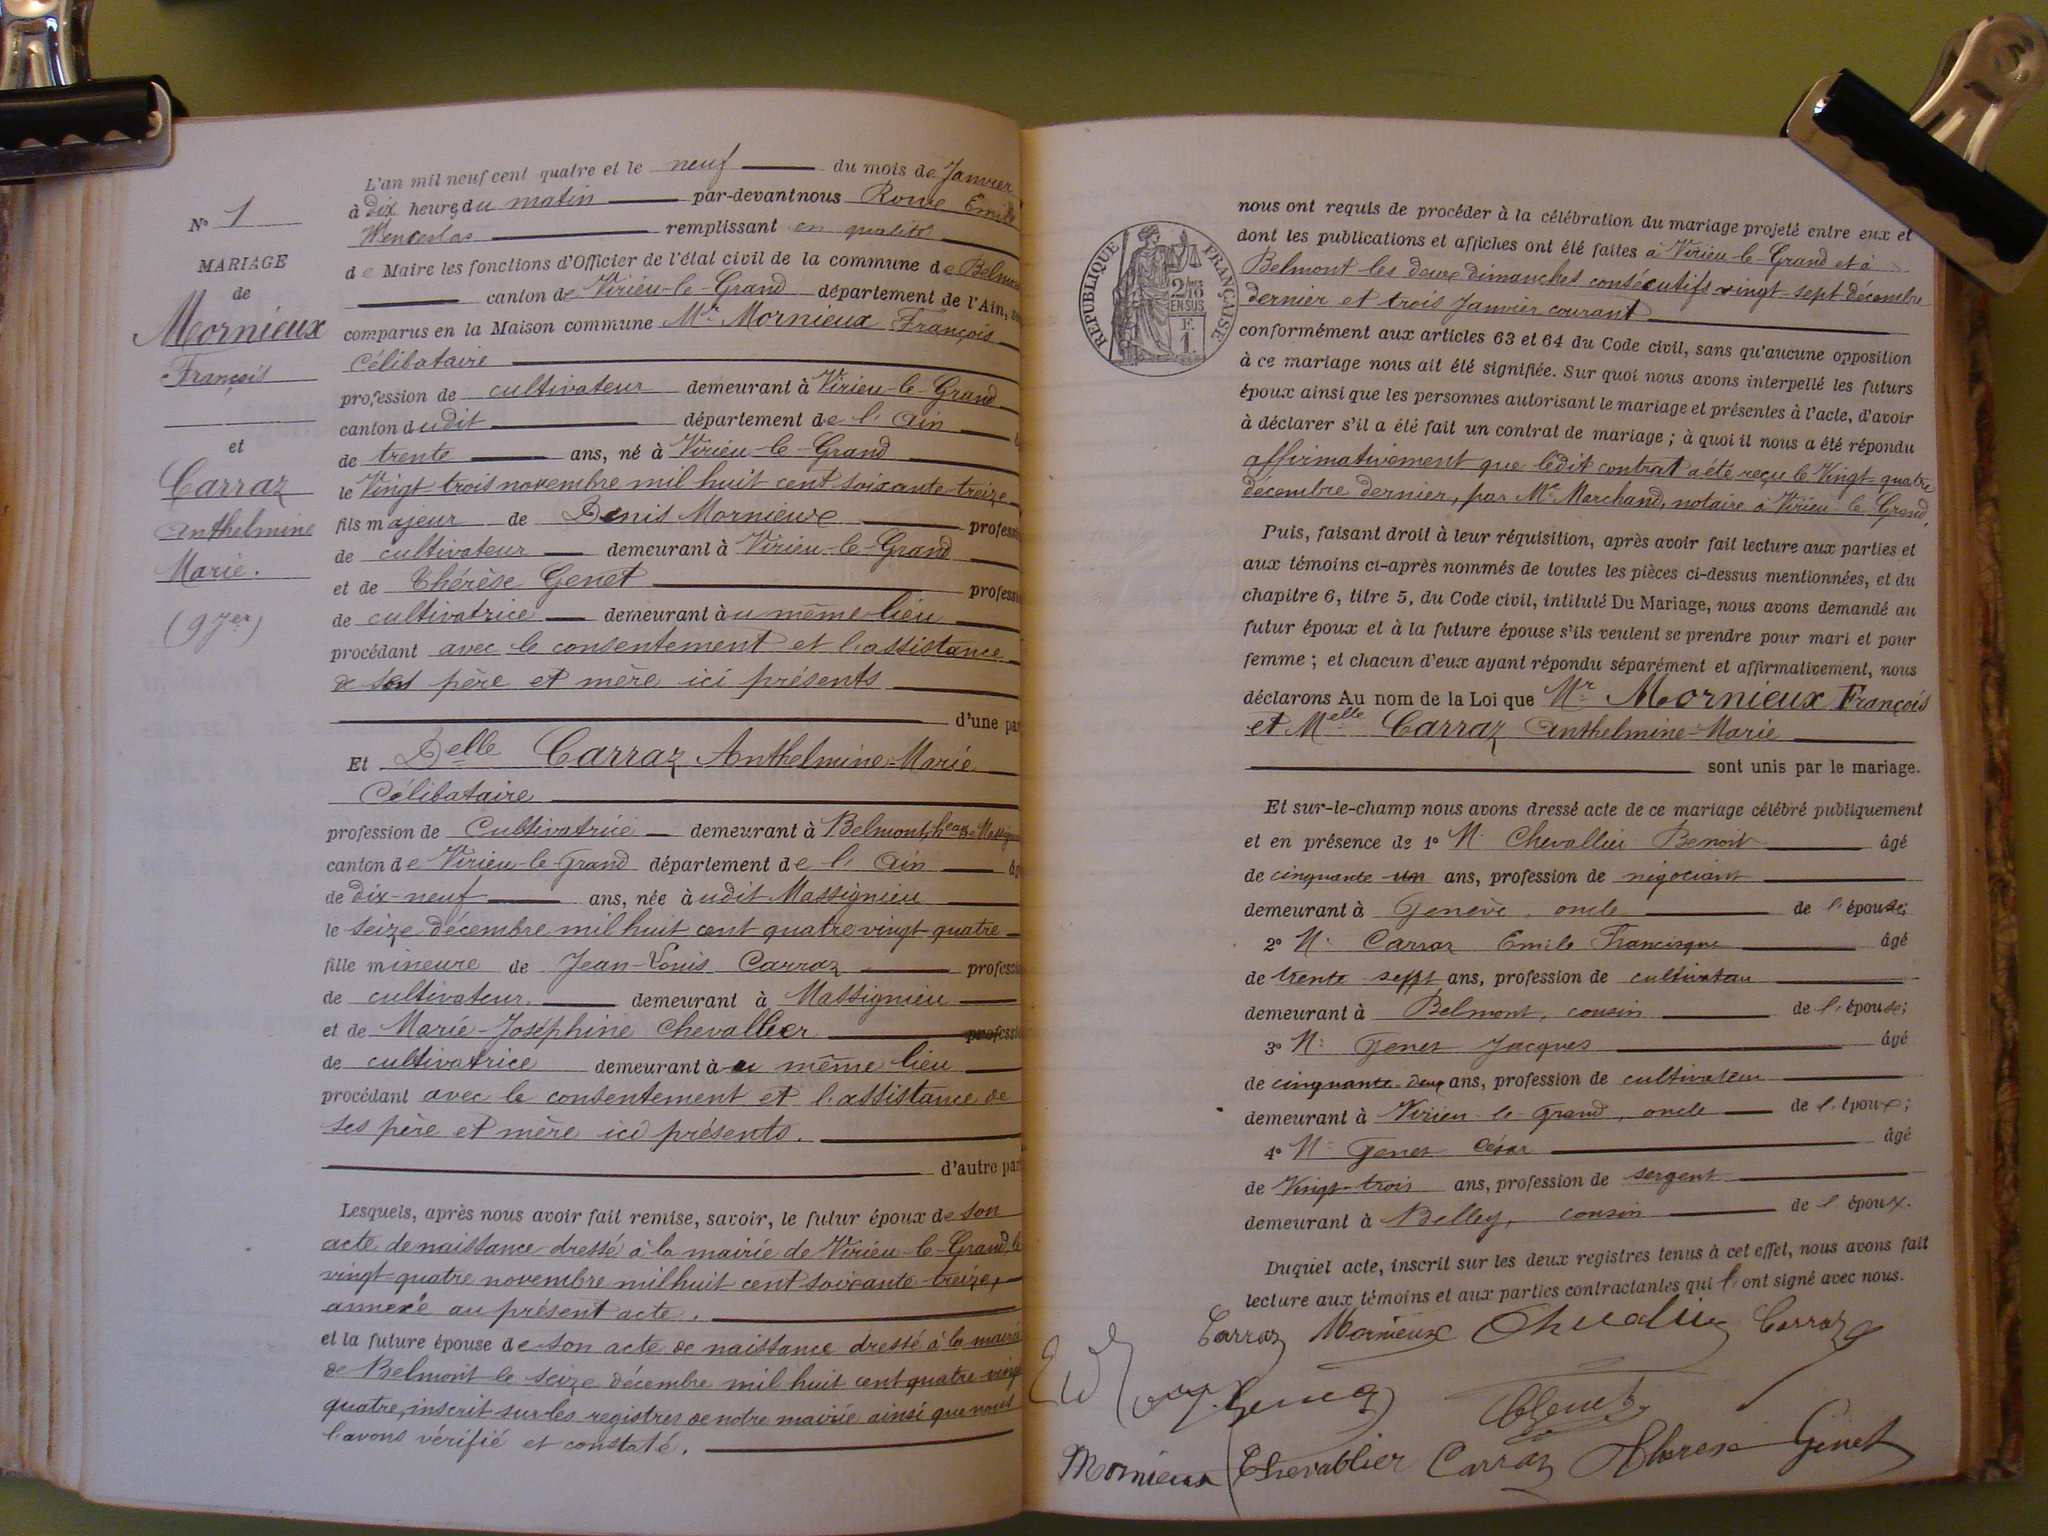 N° 1
MARIAGE
de
Mornieux
François
et
Carraz
Anthelmine
Marie.
(9 Jer)
L'an mil neuf cent quatre et le neuf du mois de Janvier
à dix heures du matin par-devant nous Roux Emile
Wenceslas remplissant en qualité
de Maire les fonctions d'Officier de l'état civil de la commune de Belmont
canton de Virieu-le-Grand département de l'Ain,
comparus en la Maison commune Mr Mornieux François
Célibataire
profession de cultivateur demeurant à Virieu-le-Grand
canton dudit département de l'Ain
de trente ans, né à Virieu-le-Grand
le Vingt-trois novembre mil huit cent soixante-treize
fils majeur de Denis Mornieux profession
de cultivateur demeurant à Virieu-le-Grand
et de Thérèse Genet profession
de cultivatrice demeurant au même lieu
procédant avec le consentement et l'assistance
de ses père et mère ici présents
d'une part
Et Delle Carraz Anthelmine-Marie
Célibataire
profession de Cultivatrice demeurant à Belmont, heau de Massignieu
canton de Virieu-le-Grand département de l'Ain âgée
de dix-neuf ans, née audit Massignieu
le seize décembre mil huit cent quatre vingt-quatre
fille mineure de Jean-Louis Carraz profession
de cultivateur demeurant à Massignieu
et de Marie-Joséphine Chevallier profession
de cultivatrice demeurant au même lieu
procédant avec le consentement et l'assistance de
ses père et mère ici présents.
d'autre part
Lesquels, après nous avoir fait remise, savoir, le futur époux de son
acte de naissance dressé à la mairie de Virieu-le-Grand, le
vingt-quatre novembre mil huit cent soixante-treize,
annexé au présent acte.
et la future épouse de son acte de naissance dressé à la mairie
de Belmont le seize décembre mil huit cent quatre-vingt
quatre, inscrit sur les registres de notre mairie ainsi que nous
l'avons vérifié et constaté.
RÉPUBLIQUE FRANÇAISE
2/10 EN SUS
F.
1.
nous ont requis de procéder à la célébration du mariage projeté entre eux et
dont les publications et affiches ont été faites à Virieu-le-Grand et à
Belmont les deux dimanches consécutifs vingt-sept décembre
dernier et trois Janvier courant
conformément aux articles 63 et 64 du Code civil, sans qu'aucune opposition
à ce mariage nous ait été signifiée. Sur quoi nous avons interpellé les futurs
époux ainsi que les personnes autorisant le mariage et présentes à l'acte, d'avoir
à déclarer s'il a été fait un contrat de mariage ; à quoi il nous a été répondu
affirmativement que ledit contrat a été reçu le Vingt-quatre
décembre dernier, par Me Marchand, notaire à Virieu-le-Grand.
Puis, faisant droit à leur réquisition, après avoir fait lecture aux parties et
aux témoins ci-après nommés de toutes les pièces ci-dessus mentionnées, et du
chapitre 6, titre 5, du Code civil, intitulé Du Mariage, nous avons demandé au
futur époux et à la future épouse s'ils veulent se prendre pour mari et pour
femme ; et chacun d'eux ayant répondu séparément et affirmativement, nous
déclarons Au nom de la Loi que Mr Mornieux François
et Melle Carraz Anthelmine-Marie
sont unis par le mariage.
Et sur-le-champ nous avons dressé acte de ce mariage célébré publiquement
et en présence de 1° M. Chevallier Benoit âgé
de cinquante-un ans, profession de négociant
demeurant à Genève, oncle de l'épouse;
2° M. Carraz Emile Francisque âgé
de trente-sept ans, profession de cultivateur
demeurant à Belmont, cousin de l'épouse;
3° M. Genet Jacques âgé
de cinquante-deux ans, profession de cultivateur
demeurant à Virieu-le-Grand, oncle de l'époux;
4° M. Genet César âgé
de Vingt-trois ans, profession de sergent
demeurant à Belley, cousin de l'époux.
Duquel acte, inscrit sur les deux registres tenus à cet effet, nous avons fait
lecture aux témoins et aux parties contractantes qui l'ont signé avec nous.
Carraz Mornieux Chevallier Carraz
Genet
Mornieux Chevallier Carraz Therese Genet